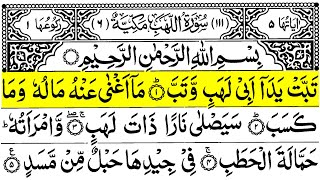 اٰیاتها ۵ (۱۱۱) سُوْرَةُ اللَّهَبِ مَكِّيَّةٌ (۶) رکوعها ۱
بِسْمِ اللّٰهِ الرَّحْمٰنِ الرَّحِيْمِ
تَبَّتْ يَدَاۤ اَبِيْ لَهَبٍ وَّتَبَّ ۝۱ مَاۤ اَغْنٰى عَنْهُ مَالُهٗ وَمَا
كَسَبَ ۝۲ سَيَصْلٰى نَارًا ذَاتَ لَهَبٍ ۝۳ وَّامْرَاَتُهٗ ؕ
حَمَّالَةَ الْحَطَبِ ۝۴ فِيْ جِيْدِهَا حَبْلٌ مِّنْ مَّسَدٍ ۝۵